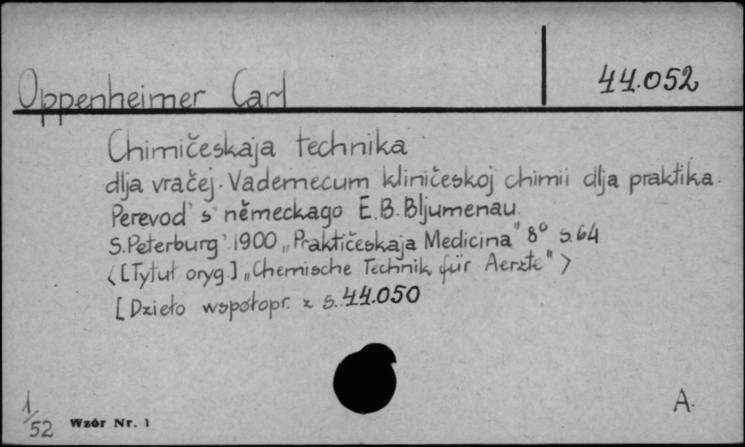 Oppenheimer Carl
44.052
Chimičeskaja technika
dlja vračej. Vademecum kliničeskoj chimii dlja praktika.
Perevod' s' německago E.B. Bljumenau.
S.Peterburg' 1900 „Praktičeskaja Medicina" 8° s.64
<[Tytuł oryg.] „Chemische Technik für Aerzte">
[Dzieło współopr. z s. 44.050
1/52
Wzór Nr. 1
A.